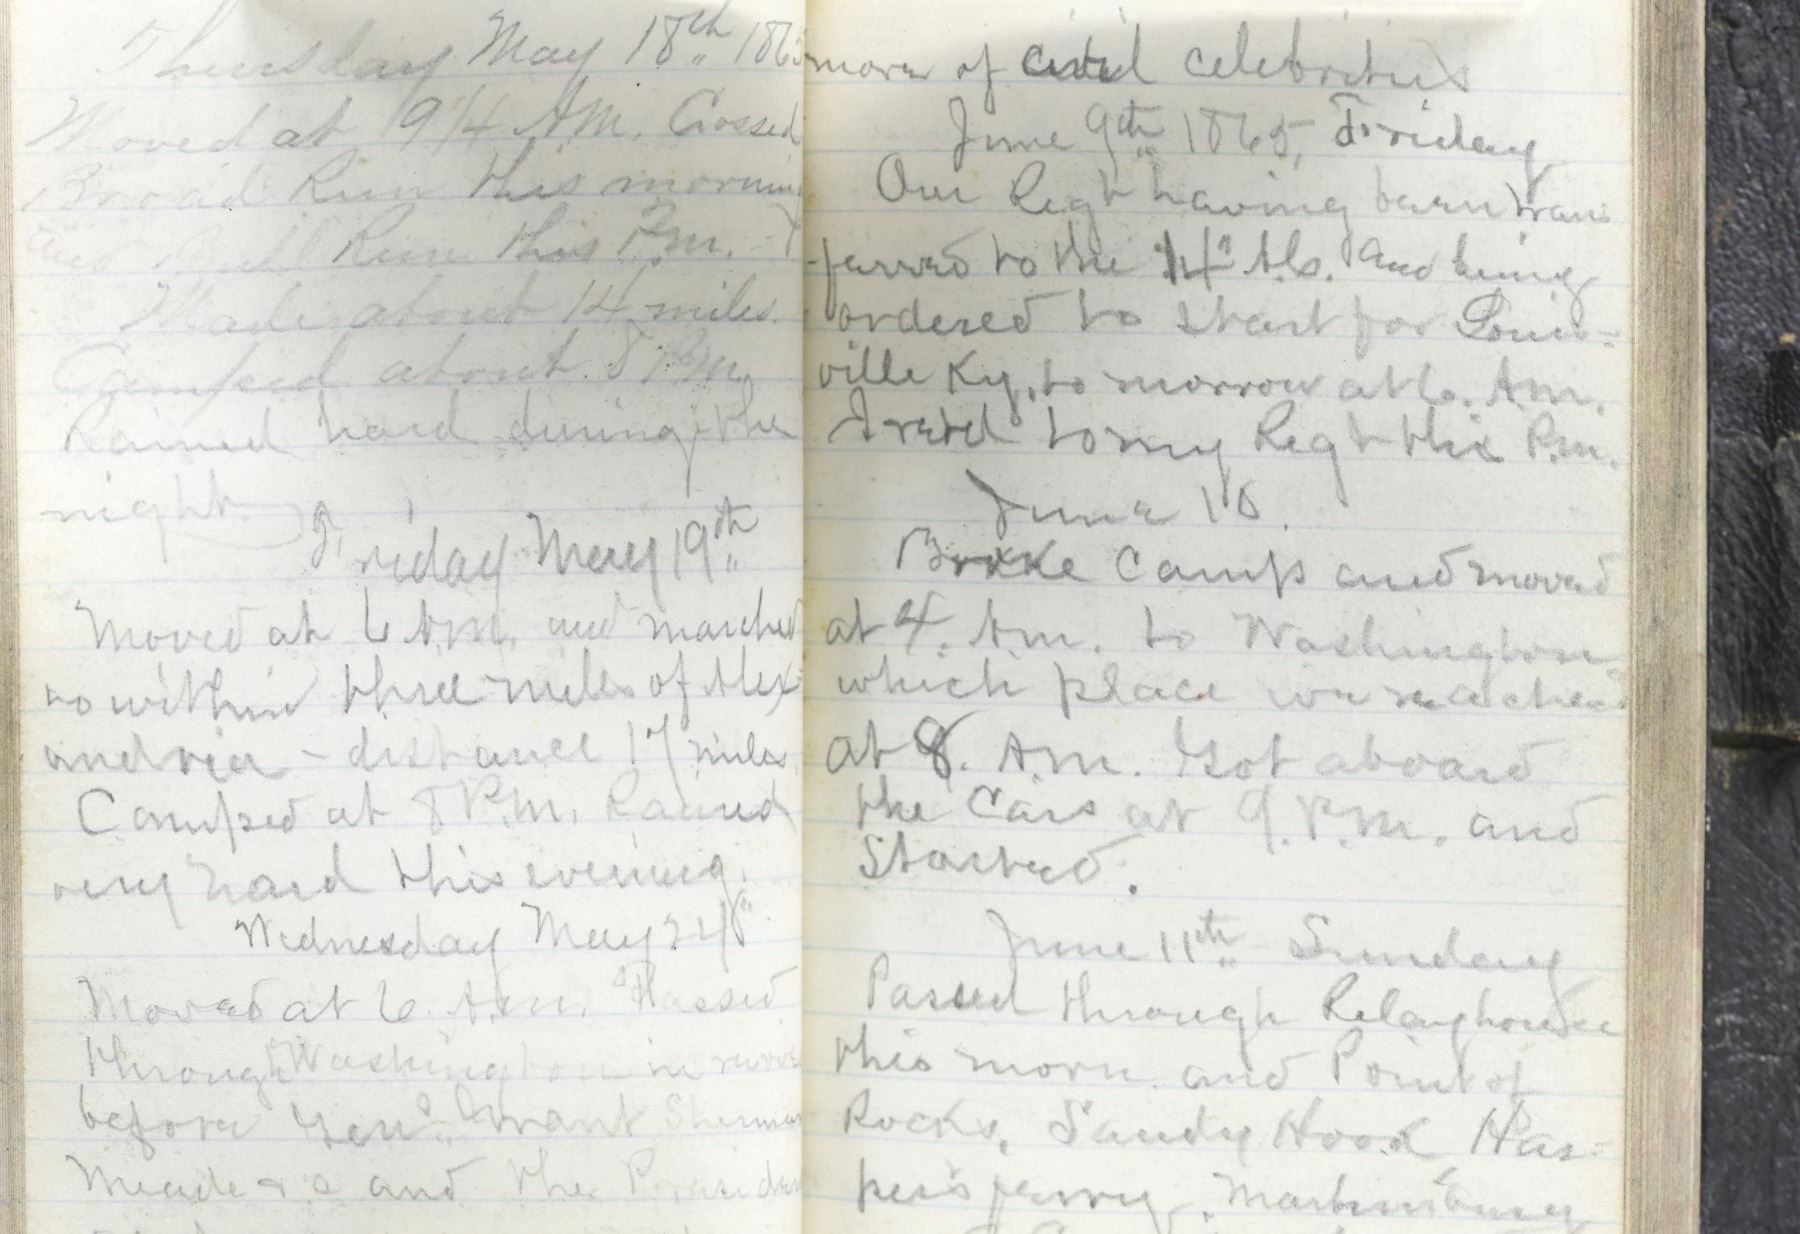 Thursday May 18th 1865
Moved at 9 1/4 A.M. Crossed
Broad Run this morning
and Bull Run this P.M. -
Made about 14 miles.
Camped about 8 P.M.
Rained hard during the
night.
Friday May 19th
Moved at 6 A.M. and marched
to within three miles of Alex-
andria - distance 17 miles.
Camped at 8 P.M. Rained
very hard this evening.
Wednesday May 24"
Moved at 6 A.M. Passed
through Washington in review
before Gen's Grant Sherman
Meade &c and the President
more of civil celebrities
June 9th 1865, Friday
Our Regt having been trans
ferred to the 14" A.C. and being
ordered to start for Louis-
ville Ky, to morrow at 6. A.M.
I retd to my Regt this P.M.
June 10.
Brokke Camp and moved
at 4. A.M. to Washington
which place we reached
at 8. A.M. Got aboard
the Cars at 9. P.M. and
Started.
June 11th Sunday
Passed through Relayhouse
this morn and Point of
Rocks, Sandy Hook Har-
per's ferry, Martinsburg